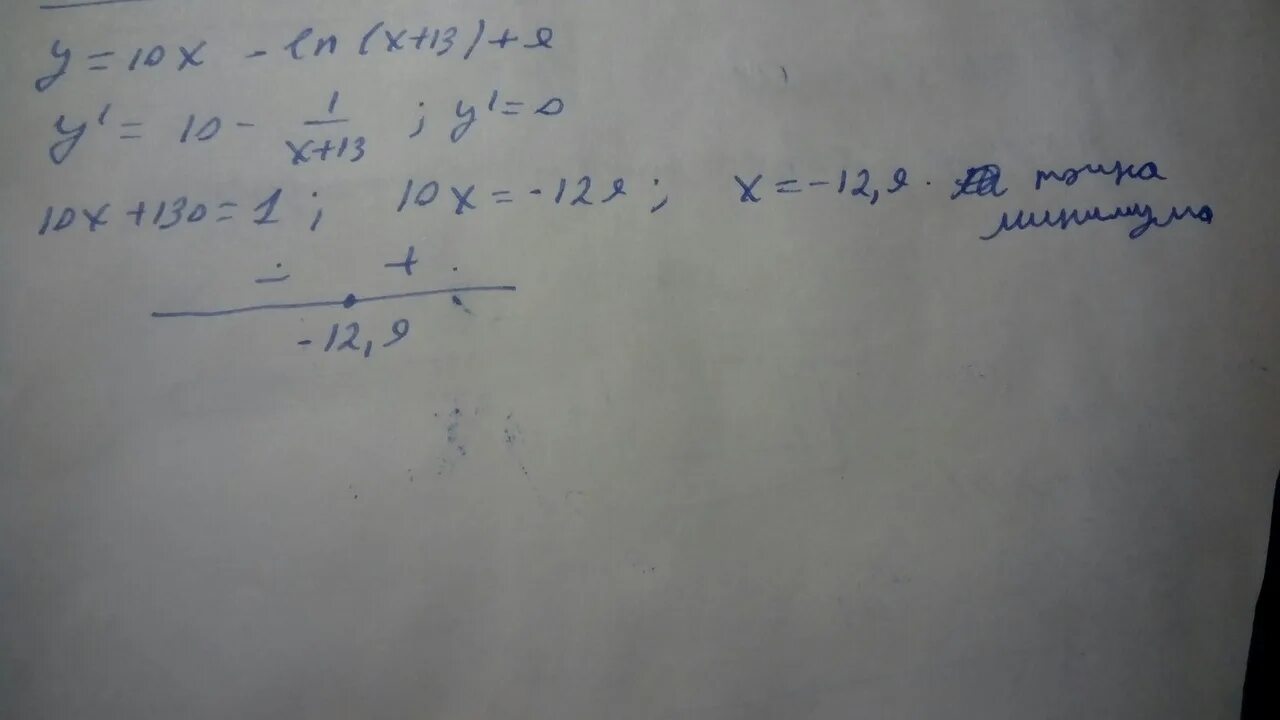 y = 10x - ln(x+13) + 9
y' = 10 - 1/(x+13) ; y' = 0
10x + 130 = 1 ; 10x = -129 ; x = -12,9 . точка
минимума
- +
-12,9